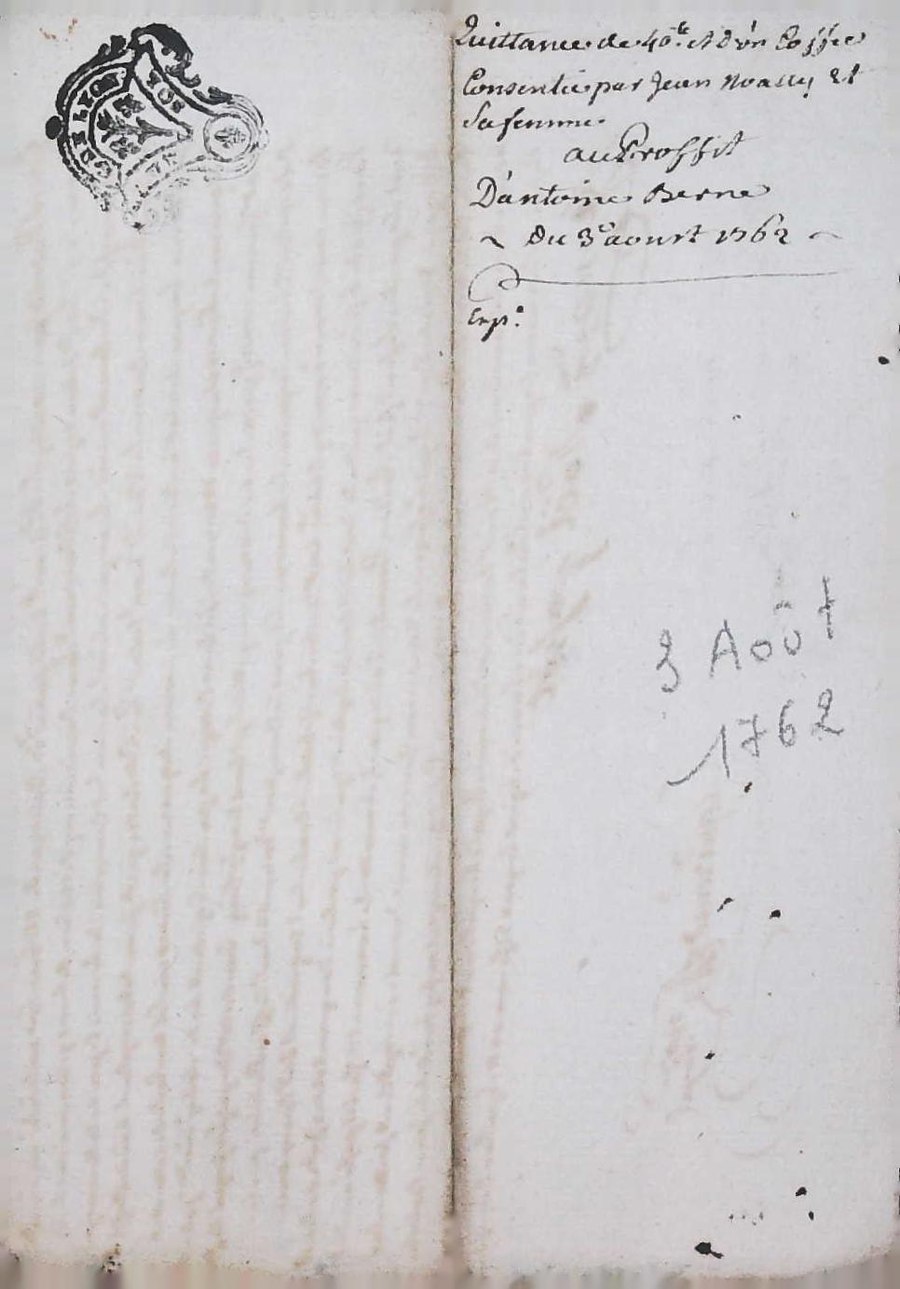 DE LYON
SOL
Quittance de 40 lt et D'un Coffre
Consentie par Jean Noally Et
Sa femme
au Proffit
D'antoine Berne
~ Du 3e aoust 1762 ~
Exp.
3 Août
1762